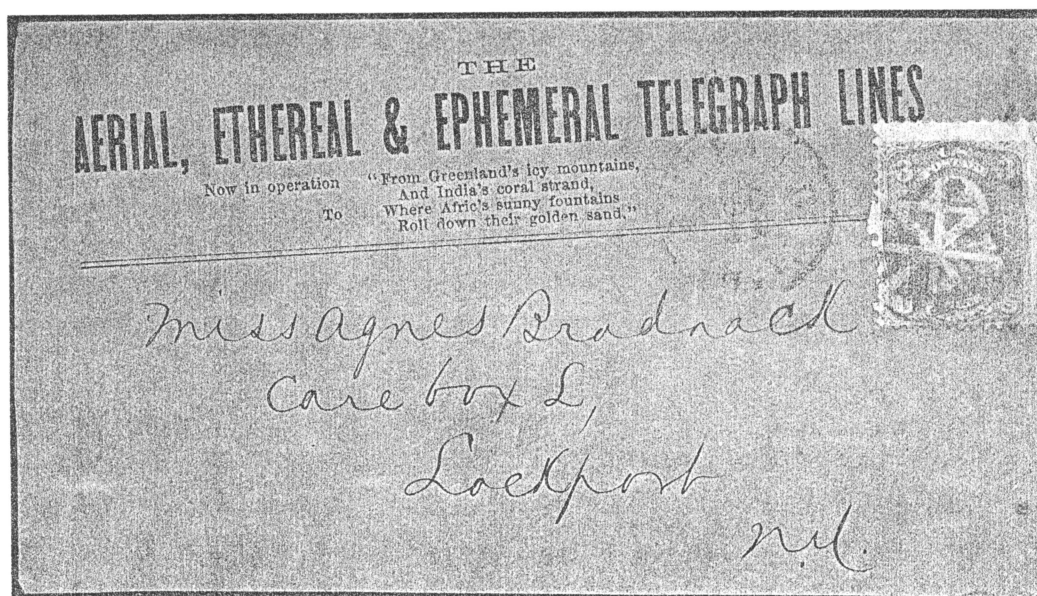 THE
AERIAL, ETHEREAL & EPHEMERAL TELEGRAPH LINES
Now in operation "From Greenland's icy mountains,
And India's coral strand,
To Where Afric's sunny fountains
Roll down their golden sand."
Miss Agnes Bradnack
Care box L,
Lockport
N.Y.
3 3